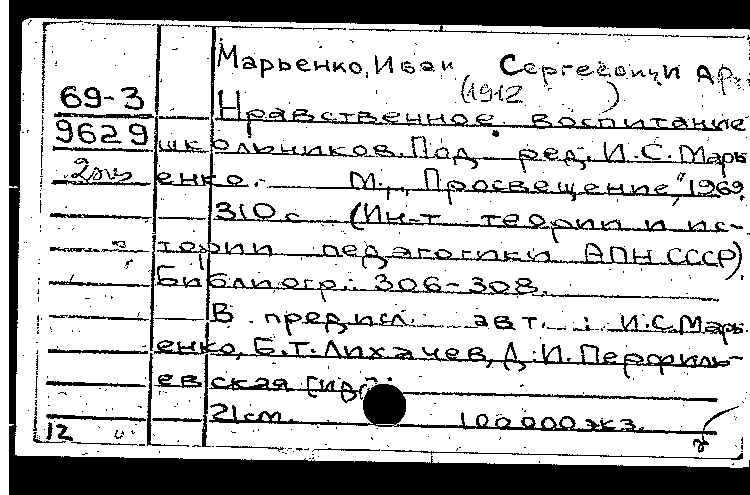 Марьенко, Иван Сергеевич
(1912 )
69-3
9629
2экз
Нравственное воспитание
школьников. Под ред. И.С. Марь
енко. М., „Просвещение", 1969.
310 с. (Ин-т теории и ис-
тории педагогики АПН СССР).
Библиогр.: 306-308.
В предисл. авт.: И.С. Марь
енко, Б.Т. Лихачев, Д.И. Перфиль-
евская [и др.].
21см. 100000экз.
12